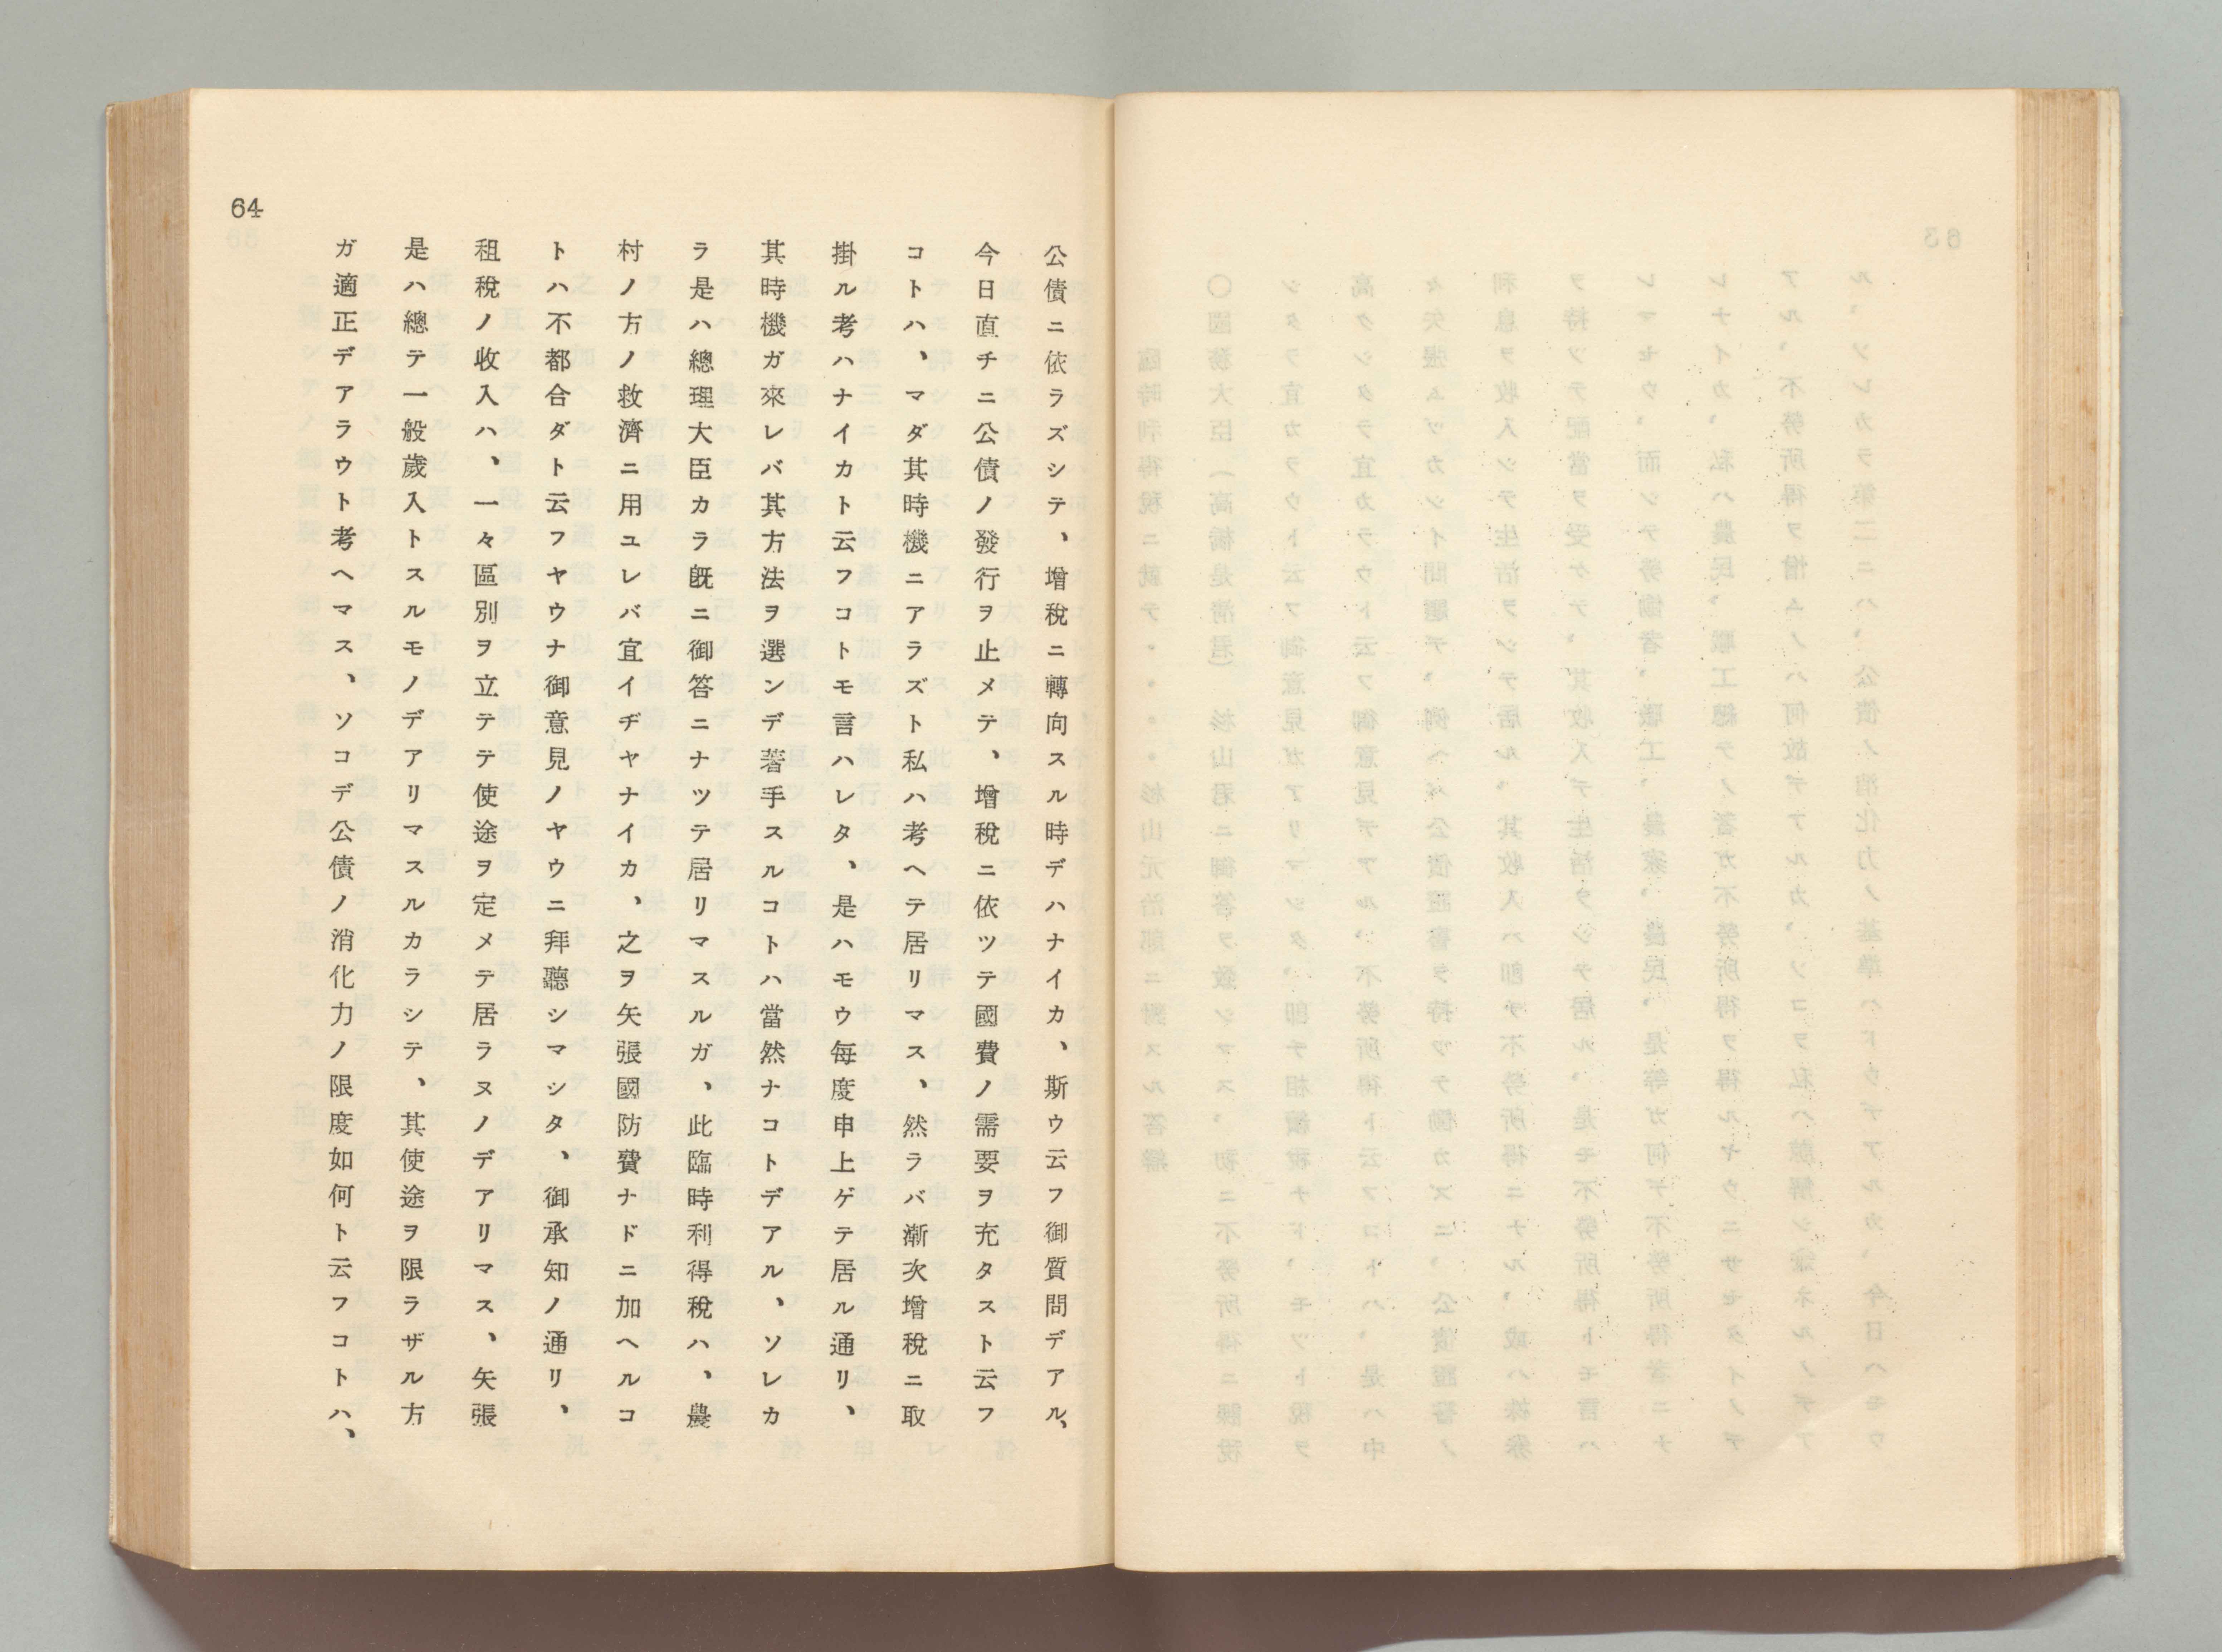 64
公債ニ依ラズシテ、增稅ニ轉向スル時デハナイカ、斯ウ云フ御質問デアル、
今日直チニ公債ノ發行ヲ止メテ、增稅ニ依ツテ國費ノ需要ヲ充タスト云フ
コトハ、マダ其時機ニアラズト私ハ考ヘテ居リマス、然ラバ漸次增稅ニ取
掛ル考ハナイカト云フコトモ言ハレタ、是ハモウ每度申上ゲテ居ル通リ、
其時機ガ來レバ其方法ヲ選ンデ著手スルコトハ當然ナコトデアル、ソレカ
ラ是ハ總理大臣カラ旣ニ御答ニナツテ居リマスルガ、此臨時利得稅ハ、農
村ノ方ノ救濟ニ用ユレバ宜イヂヤナイカ、之ヲ矢張國防費ナドニ加ヘルコ
トハ不都合ダト云フヤウナ御意見ノヤウニ拜聽シマシタ、御承知ノ通リ、
租稅ノ收入ハ、一々區別ヲ立テテ使途ヲ定メテ居ラヌノデアリマス、矢張
是ハ總テ一般歲入トスルモノデアリマスルカラシテ、其使途ヲ限ラザル方
ガ適正デアラウト考ヘマス、ソコデ公債ノ消化力ノ限度如何ト云フコトハ、